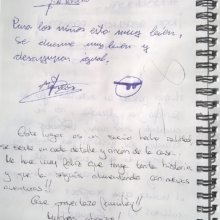 Para los niños esta muy bien,
Se duerme muy bien y
desayunan igual.
Este lugar es un sueño hecho realidad,
se siente en cada detalle y rincón de la casa.
Me hace muy feliz que haya tanta historia
y que la sigáis alimentando con nuevas
aventuras!!
Que proyectazo familiar!!